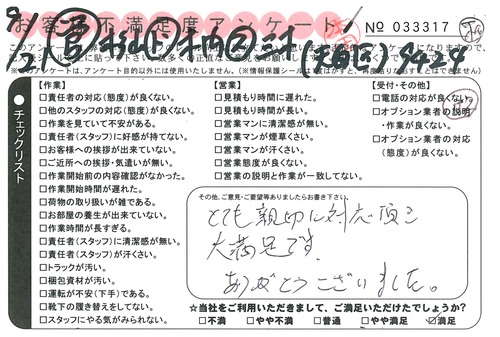 お客様不満足度アンケート
No 033317
※このアンケートは、アンケート目的以外には使用いたしません。(※情報保護シールははがすと、再度貼りなおすことはできません)
●チェックリスト
【作業】
□責任者の対応(態度)が良くない。
□他のスタッフの対応(態度)が良くない。
□作業を見ていて不安がある。
□責任者(スタッフ)に好感が持てない。
□お客様への挨拶が出来ていない。
□ご近所への挨拶・気遣いが無い。
□作業開始前の内容確認がなかった。
□作業開始時間が遅れた。
□荷物の取り扱いが雑である。
□お部屋の養生が出来ていない。
□作業時間が長すぎる。
□責任者(スタッフ)に清潔感が無い。
□責任者(スタッフ)が汗くさい。
□トラックが汚い。
□梱包資材が汚い。
□運転が不安(下手)である。
□靴下の履き替えをしてない。
□スタッフにやる気がみられない。
【営業】
□見積もり時間に遅れた。
□見積もり時間が長い。
□営業マンに清潔感が無い。
□営業マンが煙草くさい。
□営業マンが汗くさい。
□営業態度が良くない。
□営業の説明と作業が一致してない。
【受付・その他】
□電話の対応が良くない。
□オプション業者の説明・作業が良くない。
□オプション業者の対応(態度)が良くない。
その他、ご意見・ご要望等ありましたらお書き下さい。
とても親切に対応頂き
大満足です。
ありがとうございました。
☆当社をご利用いただきまして、ご満足いただけたでしょうか?
□不満 □やや不満 □普通 □やや満足 ☑満足